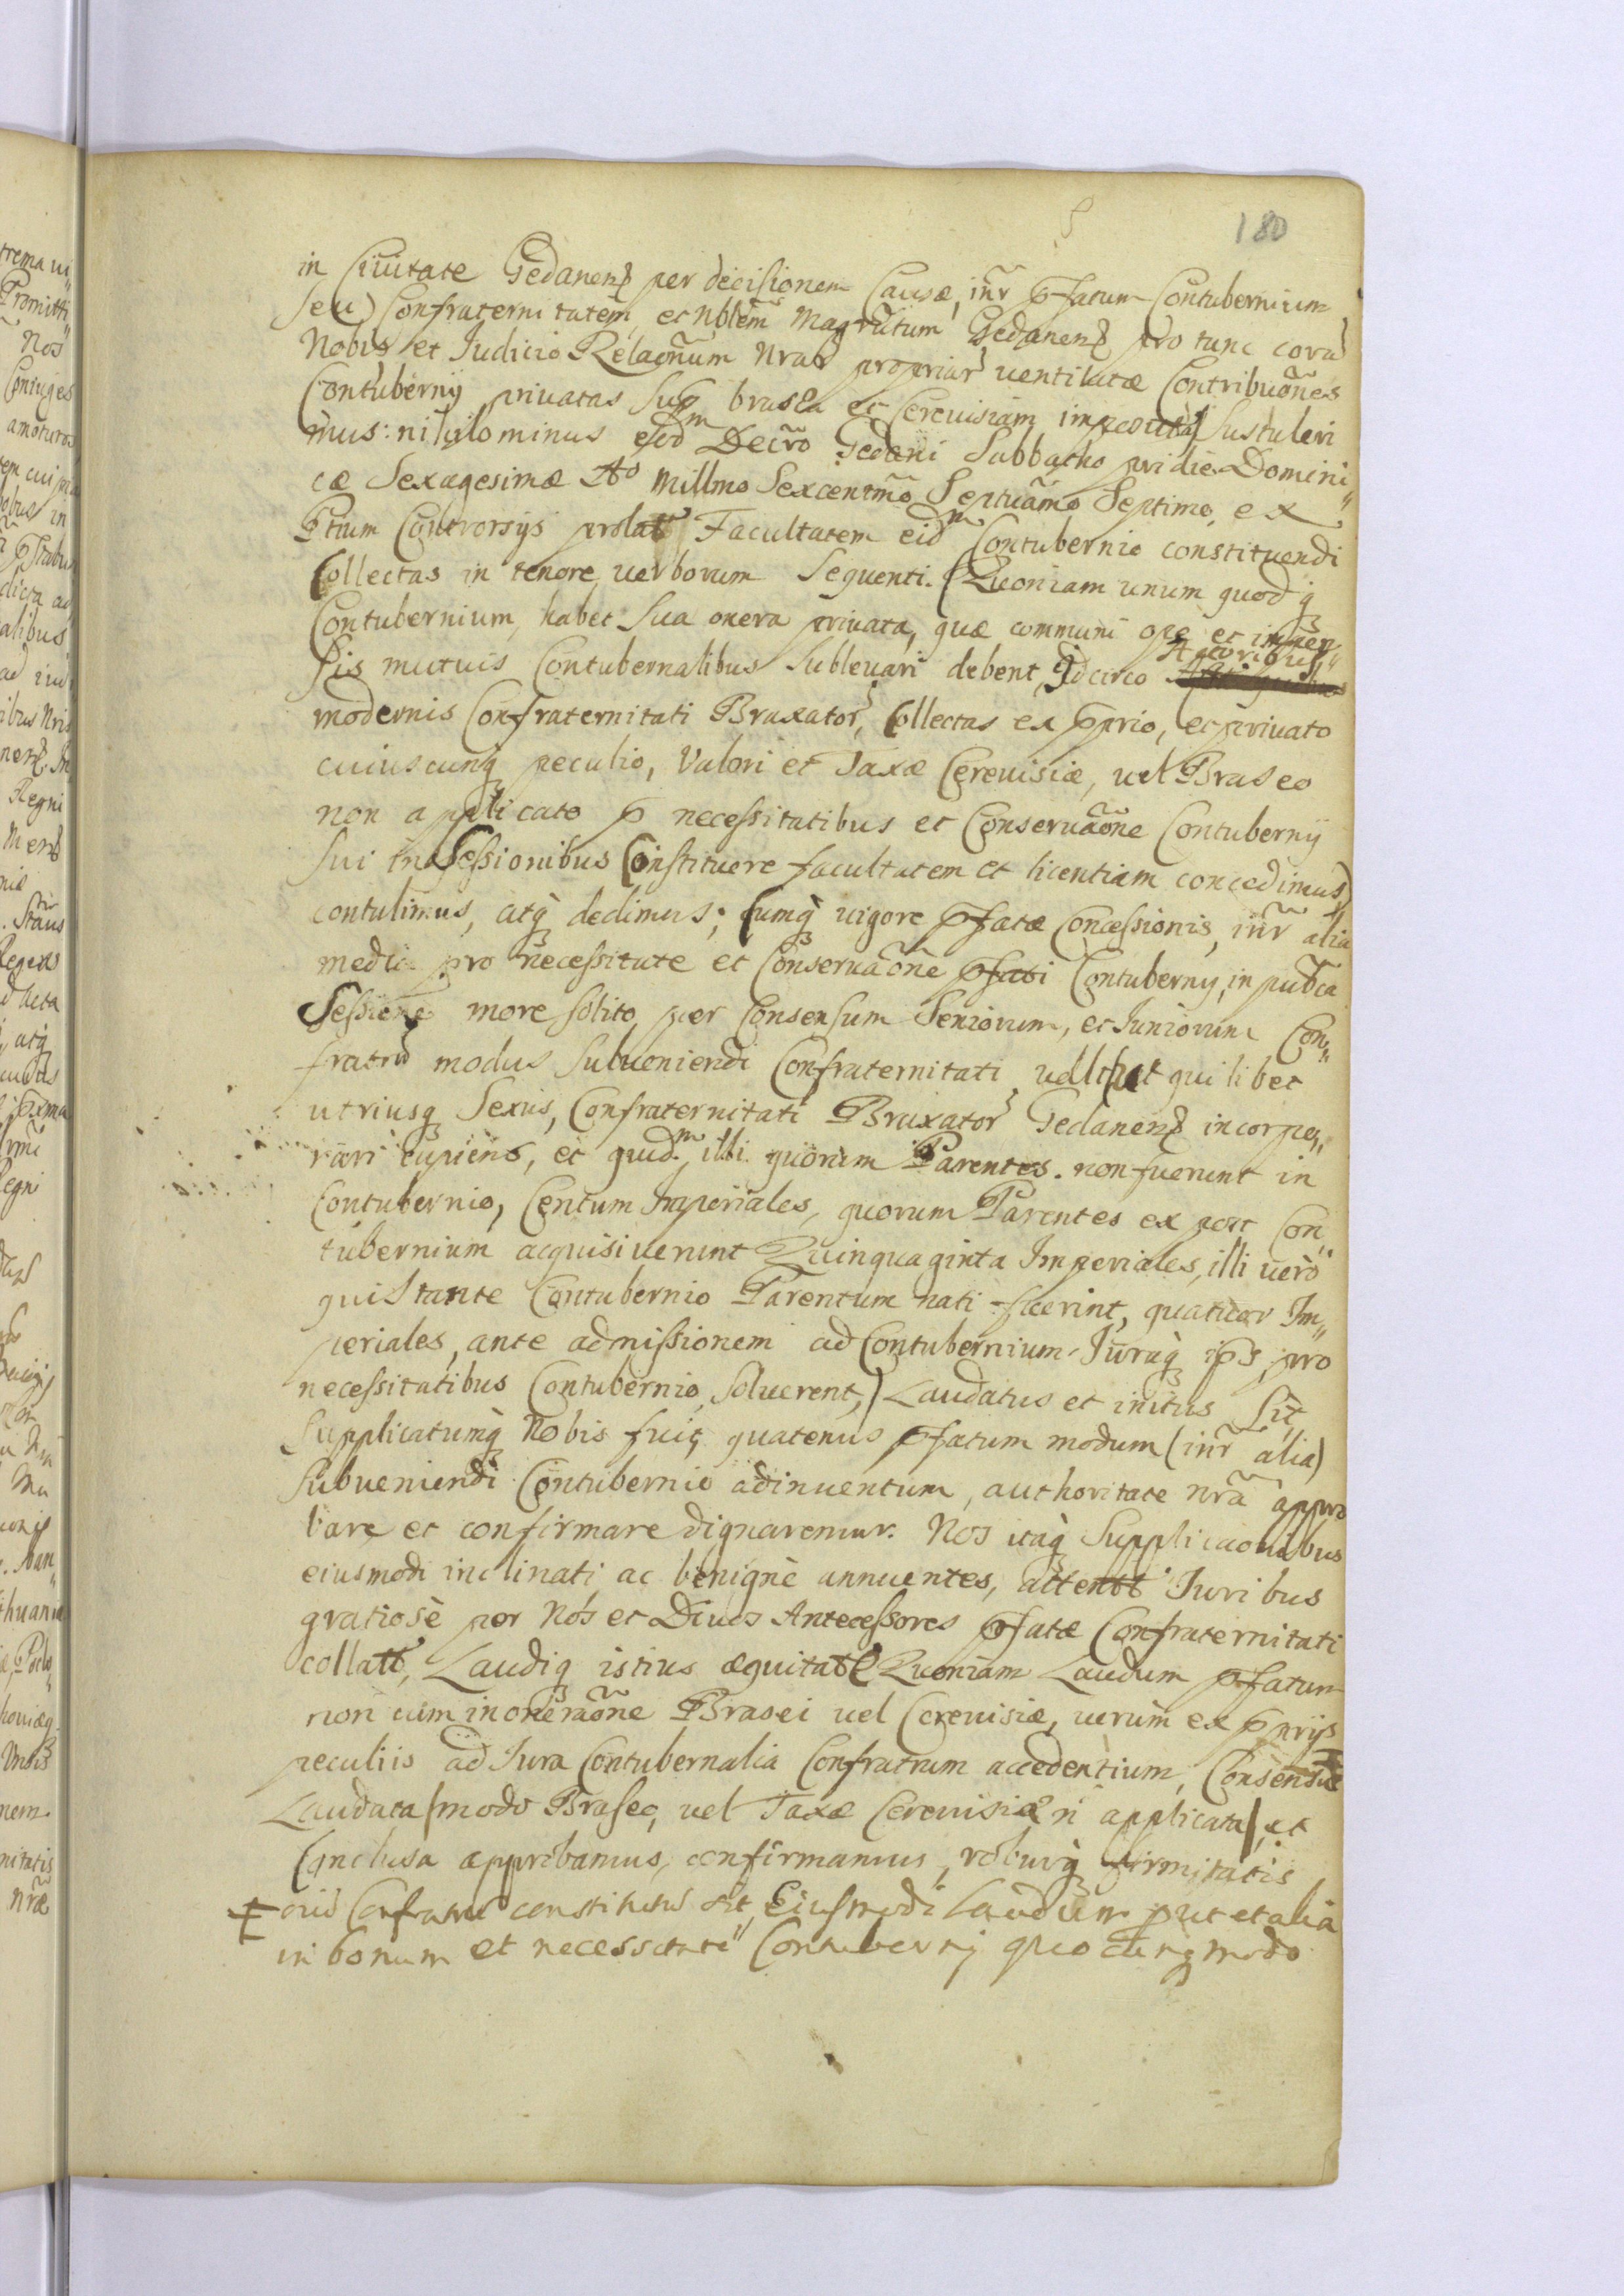 180
in Ciuitate Gedanens per decisionem Causæ, inr̃ p̃fatum Contubernium
seu) Confraternitatem, et Nblem̃ Magr̃utum Gedanens pro tunc corã
Nobis et Iudicio Relaõnum Nrar propriar uentilatæ Contribuõnes
Contubernÿ priuatas Sup brasea et Cereuisiam impositas Sustuleri
mus: nihilominus eod̃m Decr̃o Gedani Sabbatho pridie Domini„
cæ Sexagesimæ Aº Millmo Sexcentm̃o Septuam̃o Septimo, ex
Ptium Controversÿs prolatº Facultatem eidm Contubernio constituendi
Collectas in tenore uerborum Sequenti. Quoniam unum quodq
Contubernium, habet Sua onera priuata, quæ communi ope et impen„
sis mutuis Contubernalibus Subleuari debent, Idcirco Actoribus
modernis Confraternitati Braxator, Collectas ex pprio, et priuato
cuiuscunq peculio, Valori et Taxæ Cereuisiæ, uel Braseo
non applicato p necessitatibus et Conseruaõne Contubernÿ
sui in Sessionibus Constituere facultatem et licentiam concedimus,
contulimus, atq dedimus; Cumq uigore p̃fatæ Concessionis, inr̃ alia
media pro necessitate et Conseruaõne p̃fati Contubernÿ, in pub̃ca
Sessione more solito per Consensum Seniorum, et Iuniorum Con„
fratrũ modus Subueniendi Confraternitati, uel quilibet
utriusq Sexus, Confraternitati Braxator Gedanens incorpo„
rari cupiens, et quidm illi quorum Parentes non fuerunt in
Contubernio, Centum Imperiales, quorum Parentes ex post Con„
tubernium acquisiuerunt Quinquaginta Imperiales, illi uerò
qui Stante Contubernio Parentum nati fuerint, quatuor Im„
periales, ante admissionem ad Contubernium Iuraq ips, pro
necessitatibus Contubernio, Soluerent,) Laudatus et initus Sit,
Supplicatumq Nobis fuit, quatenus p̃fatum modum (inr̃ alia)
Subueniendi Contubernio adinuentum, authoritate nrã appro
bare et confirmare dignaremur. Nos itaq Supplicaõnibus
eiusmodi inclinati ac benignè annuentes, attentº Iuribus
gratiosè per Nos et Diuos Antecessores p̃fatæ Confraternitati
collatº, Laudiq istius æquitate Quoniam Laudum p̃fatum
non cum inoneraõne Brasei uel Cereuisiæ, uerùm ex pprÿs
peculiis ad Iura Contubernalia Confratrum accedentium, Consensu
Laudata (modo Braseo, uel Taxæ Cereuisiæ ñ applicata), et
Conclusa approbamus, confirmamus, roburq firmitatis
Confratrũ constitutũ sit, Eiusmodi Laudum put et alia
in bonum et necessitate Contubernÿ quocunq modo